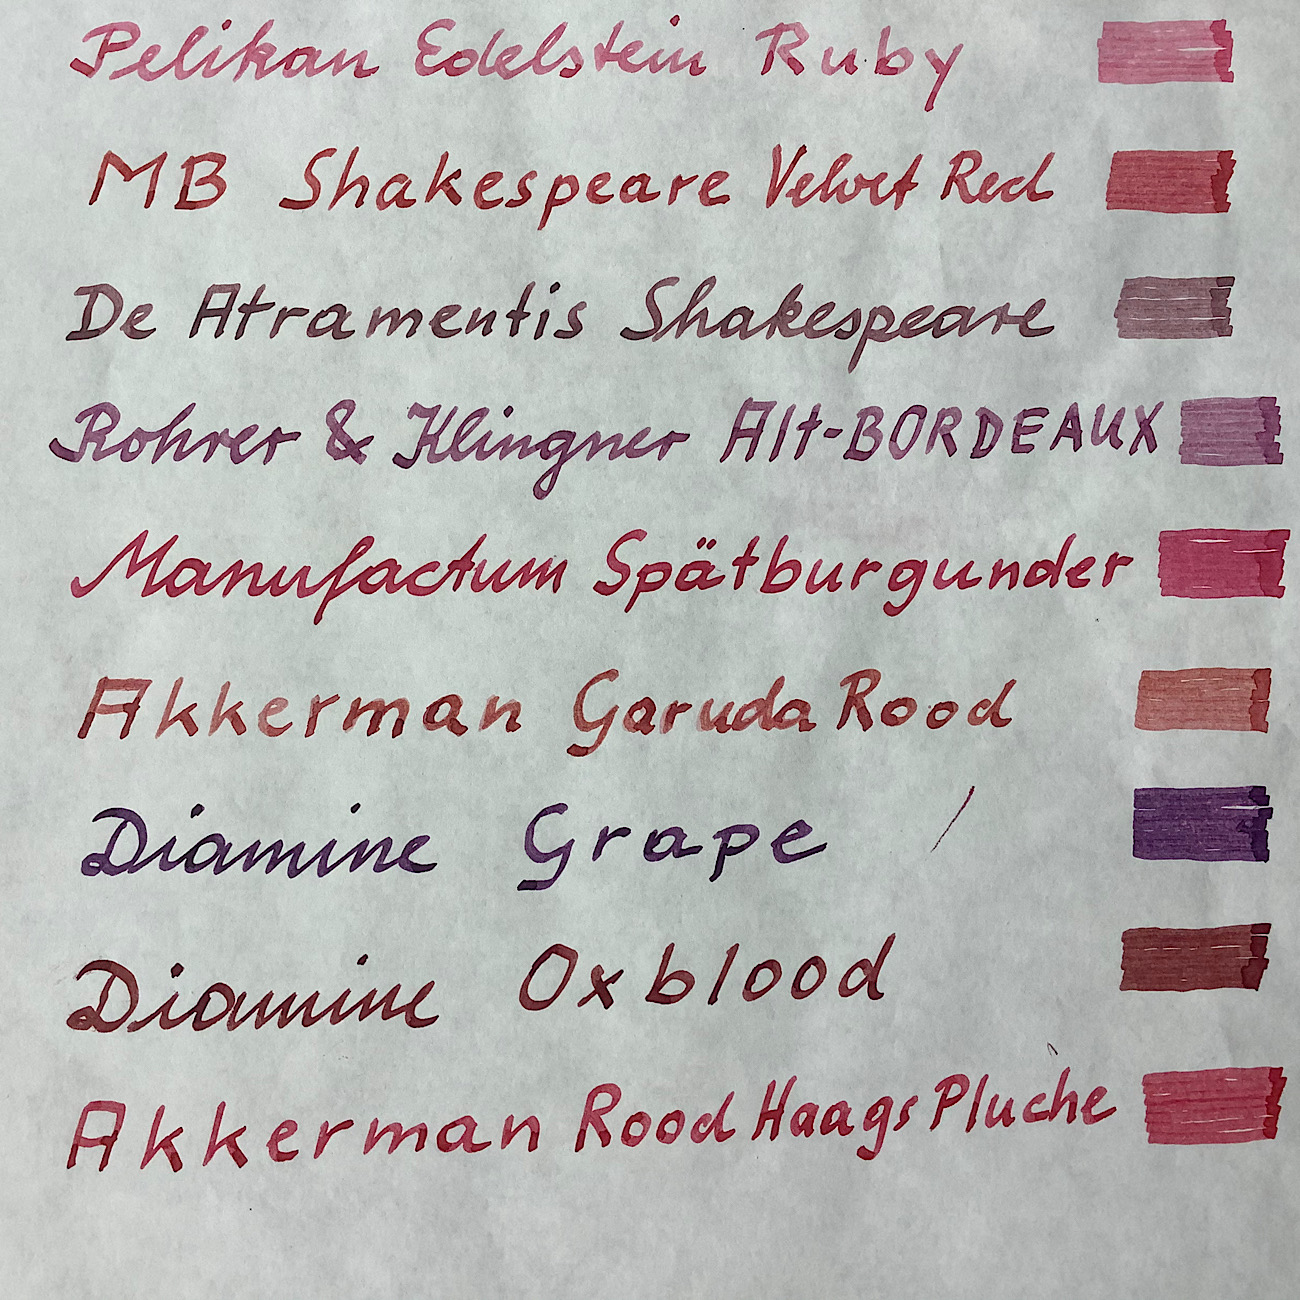 Pelikan Edelstein Ruby
MB Shakespeare Velvet Red
De Atramentis Shakespeare
Rohrer & Klingner Alt-BORDEAUX
Manufactum Spätburgunder
Akkerman Garuda Rood
Diamine Grape
Diamine Oxblood
Akkerman Rood Haags Pluche